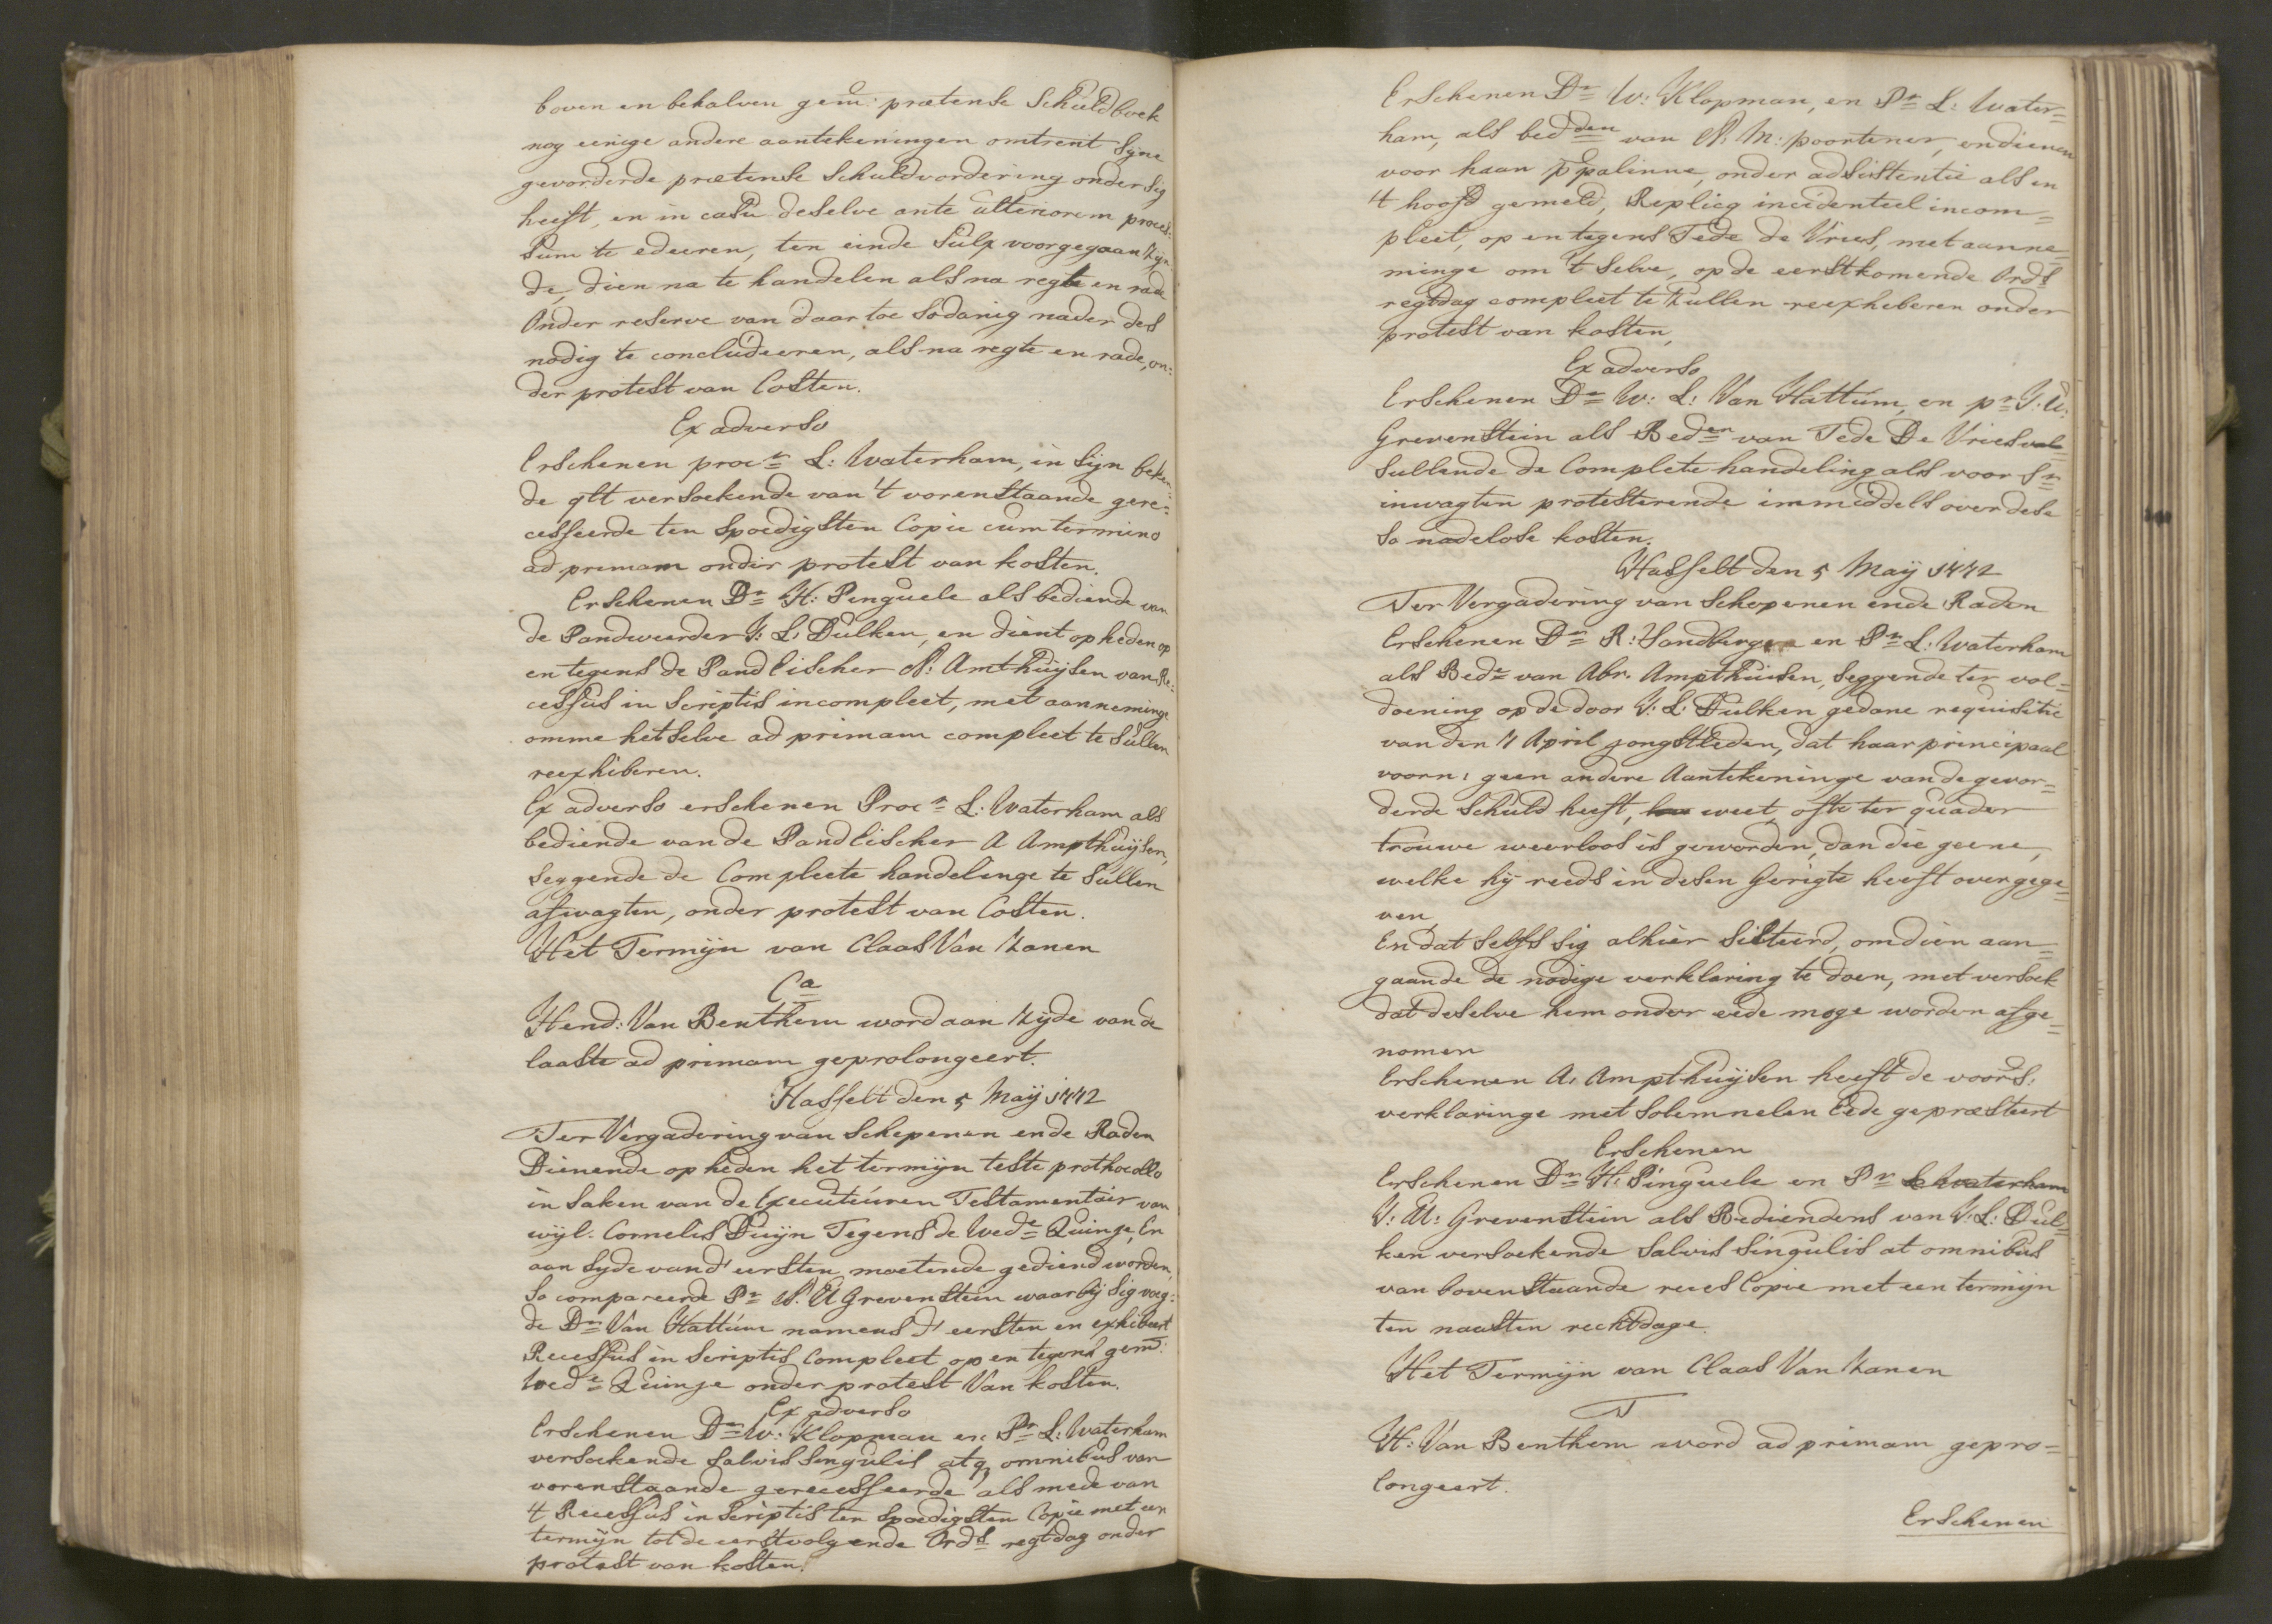 boven en behalven gem: prætense Schuldboek
nog eenige andere aantekeningen omtrent Syne
gevorderde prætense Schuldvordering onder Sig
heeft, en in casu deselve ante ulteriorem proces-
sum te edeeren, ten einde Sulx voorgegaan Zyn-
de, dien na te handelen als na regte en rade
Onder reserve van daar toe Sodanig nader des
nodig te concludeeren, als na regte en rade, on:
der protest van Costen.
Ex adverso
Erschenen procr L: Waterham, in Sijn beken:
de qlt versoekende van 't vorenstaande gere=
cesseerde ten Spoedigsten Copie cum termino
ad primam onder protest van kosten.
Erschenen Dr H: Penguele als bediende van
de Pandweerder J: L: Dulken, en dient op heden op
en tegens de Pandeischer A: Ampthuijsen van Re:
cessus in Scriptis incompleet, met aanneminge
omme het selve ad primam compleet te Sullen
reexhiberen.
Ex adverso erschenen Procr L: Waterham als
bediende van de Pandeischer A Ampthuijsen,
Seggende de Compleete handelinge te Sullen
afwagten, onder protest van Costen.
Het Termijn van Claas Van Zanen
Ca
Hend: Van Benthem word aan Zyde van de
laaste ad primam geprolongeert.
Hasselt den 5 Maij 1772
Ter Vergadering van Schepenen ende Raden
Dienende op heden het termijn teste prothocollo
in Saken van de Executeuren Testamentair van
wijl: Cornelis Duijn Tegens de Wede Quinje, En
aan Syde vand' eersten moetende gediend worden,
So compareerde Pr J: U Grevenstein waarbij Sig voeg:
de Dr Van Hattum namens d' eersten en exhibeert
Recessus in Scriptis Compleet op en tegens gem:
Wede Quinje onder protest Van kosten.
Ex adverso
Erschenen Dr W: Klopman en Pr L: Waterham
versoekende Salvis Singulis atq omnibus van
vorenstaande gerecesseerde als mede van
't Recessus in Scriptis ten Spoedigsten Copie met een
termijn tot de eerstvolgende Ords regtdag onder
protest van kosten.
Erschenen Dr W: Klopman, en Pr L: Water=
ham, als bedden van A: M: poortener, endienen
voor haar ppalinne, onder adsistentie als in
't hoofd gemeld, Replicq incidenteel incom=
pleet, op en tegens Tede de Vries, met aanne=
minge om 't Selve, op de eerstkomende Ords
regtdag compleet te Zullen reexhiberen onder
protest van kosten,
Ex adverso
Erschenen Dr W: L: Van Hattum, en pr J: U:
Grevenstein als Beden van Tede De Vries
Sullende de Complete handeling als voor Sr
inwagten protesterende immiddels over dese
So nodelose kosten.
Hasselt den 5 Maij 1772
Ter Vergadering van Schepenen ende Raden
Erschenen Dr R: Sandberg en Pr L: Waterham
als Bede van Abr. Ampthuisen, Seggende ter vol=
doening op de door J: L: Dulken gedane requisitie
van den 7 April jongstleden, dat haar principaal
voorn: geen andere Aantekeninge van de gevor=
derde Schuld heeft, weet, ofte ter quader
trouwe weerloos is geworden, dan die geene,
welke hij reeds in desen Gerigte heeft overgege=
ven
En dat Selfs Sig alhier Sisteerd, omdien aan=
gaande de nodige verklaring te doen, met versoek
dat deselve hem onder eede moge worden afge=
nomen
Erschenen A: Ampthuijsen heeft de voors:
verklaringe met Solemnelen Eede gepræsteert
Erschenen
Erschenen Dr H: Pinguele en Pr L Waterham
J: U: Grevenstein als Bediendens van J: L: Dul=
ken versoekende Salvis Singulis at omnibus
van bovenstaande reces Copie met een termijn
ten naasten rechtdage.
Het Termijn van Claas Van Zanen
T
H: Van Benthem word ad primam gepro=
longeert.
Erschenen